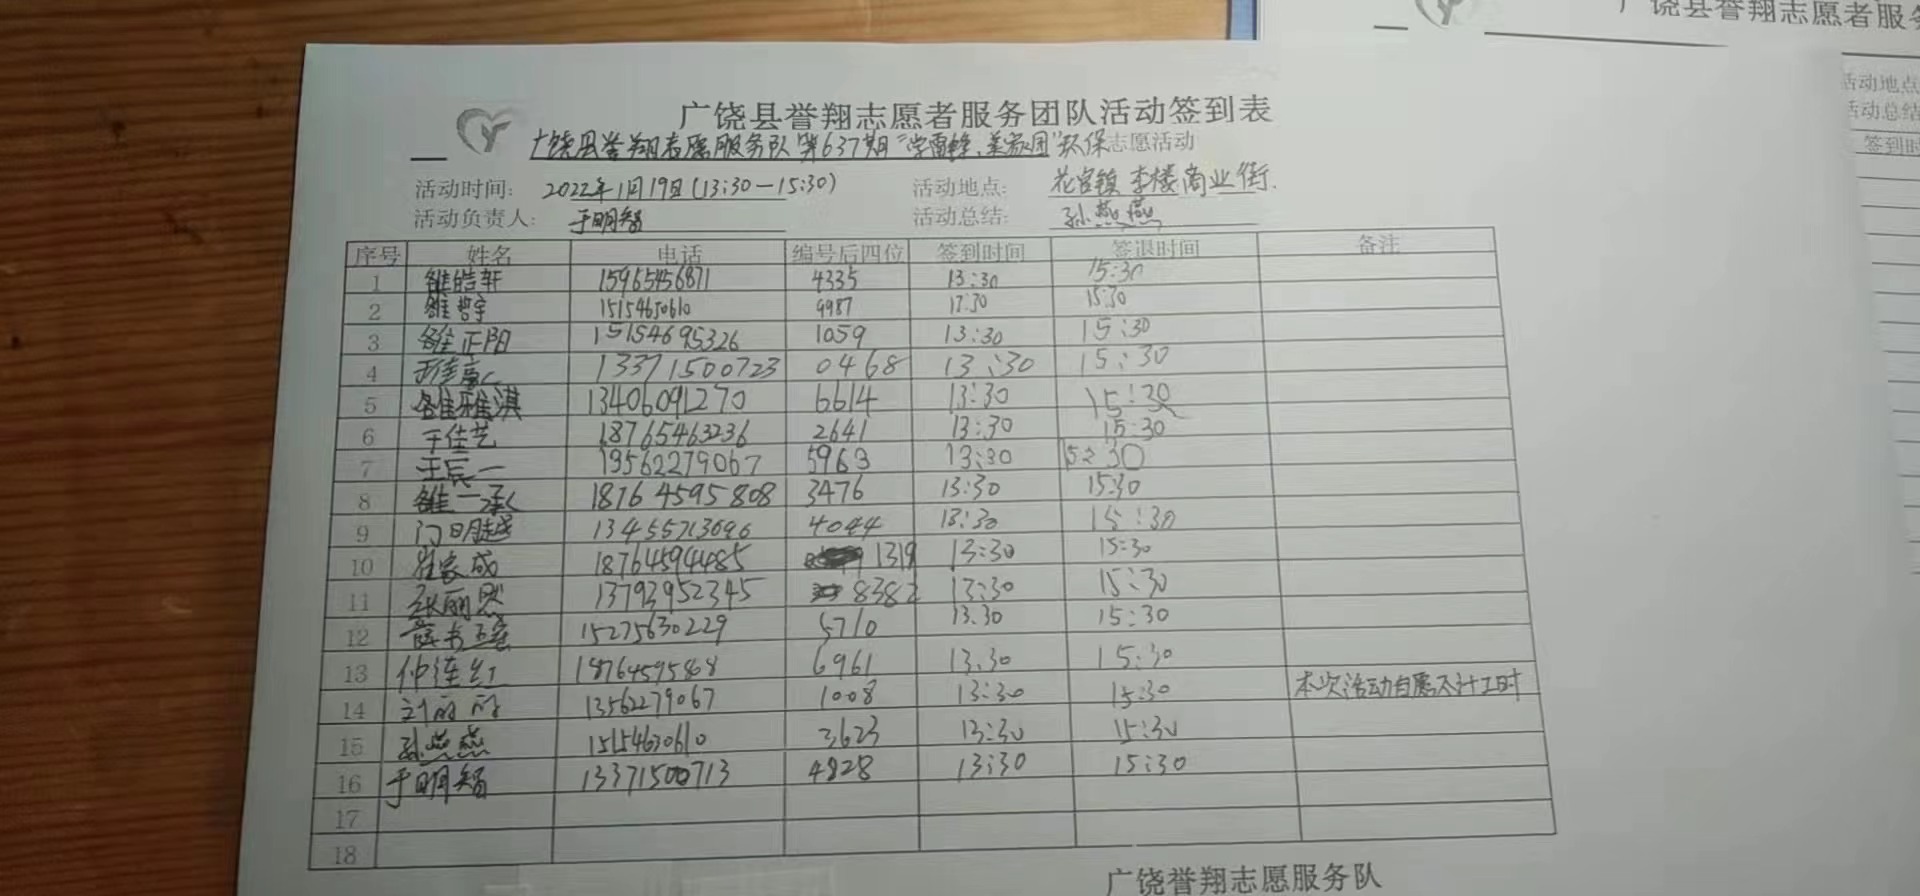 广饶县誉翔志愿者服务
活动地点
活动总结
签到时
广饶县誉翔志愿者服务团队活动签到表
广饶县誉翔志愿服务队第637期"学雷锋、美家园"环保志愿活动
活动时间: 2022年1月19日(13:30—15:30) 活动地点: 花官镇李楼商业街.
活动负责人: 于明智 活动总结: 孙燕燕
序号 姓名 电话 编号后四位 签到时间 签退时间 备注
1 雒皓轩 15965456871 4335 13:30 15:30
2 雒哲宇 15154630610 9987 13:30 15:30
3 雒正阳 15154695326 1059 13:30 15:30
4 13371500723 0468 13:30 15:30
5 雒雅淇 13406091270 6614 13:30 15:30
6 于佳艺 18765463236 2641 13:30 15:30
7 王辰一 13562279067 5963 13:30 15:30
8 雒一承 18764595808 3476 13:30 15:30
9 门明越 13455713696 4044 13:30 15:30
10 崔家成 18764594485 1319 13:30 15:30
11 张丽恩 13793952345 8382 13:30 15:30
12 15275630229 5710 13.30 15:30
13 仲连红 18764595808 6961 13.30 15:30
14 13562279067 1008 13:30 15:30 本次活动自愿不计工时
15 孙燕燕 15154630610 3623 13:30 15:30
16 于明智 13371500713 4828 13:30 15:30
17
18
广饶誉翔志愿服务队